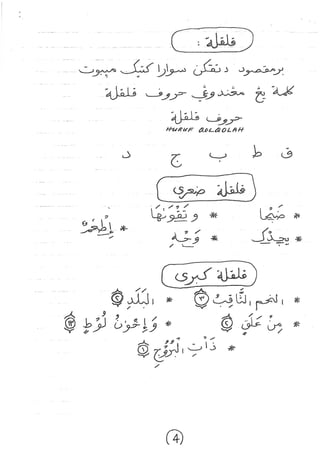 قلقلة :
برمقصود دنتكن سوارا كتيك مپبوت
كلمة يڠ مڠندوڠي حروف قلقلة
حروف قلقلة
HURUF QOLQOLAH
ق ط ب ج د
قلقلة صغرى
* ضَبْحًا * وَتَقْوَىٰهَا * إِطْعَٰمٌ
* يَجِدْكَ * وَجْهِ
قلقلة كبرى
* النجم الثَّاقِبُ ٣ * الْبَلَدِ ٢
* مِنْ عَلَقٍ ٢ * وَإِخْوَٰنُ لُوطٍ ١٣
* ذَاتِ الْبُرُوجِ ١
4